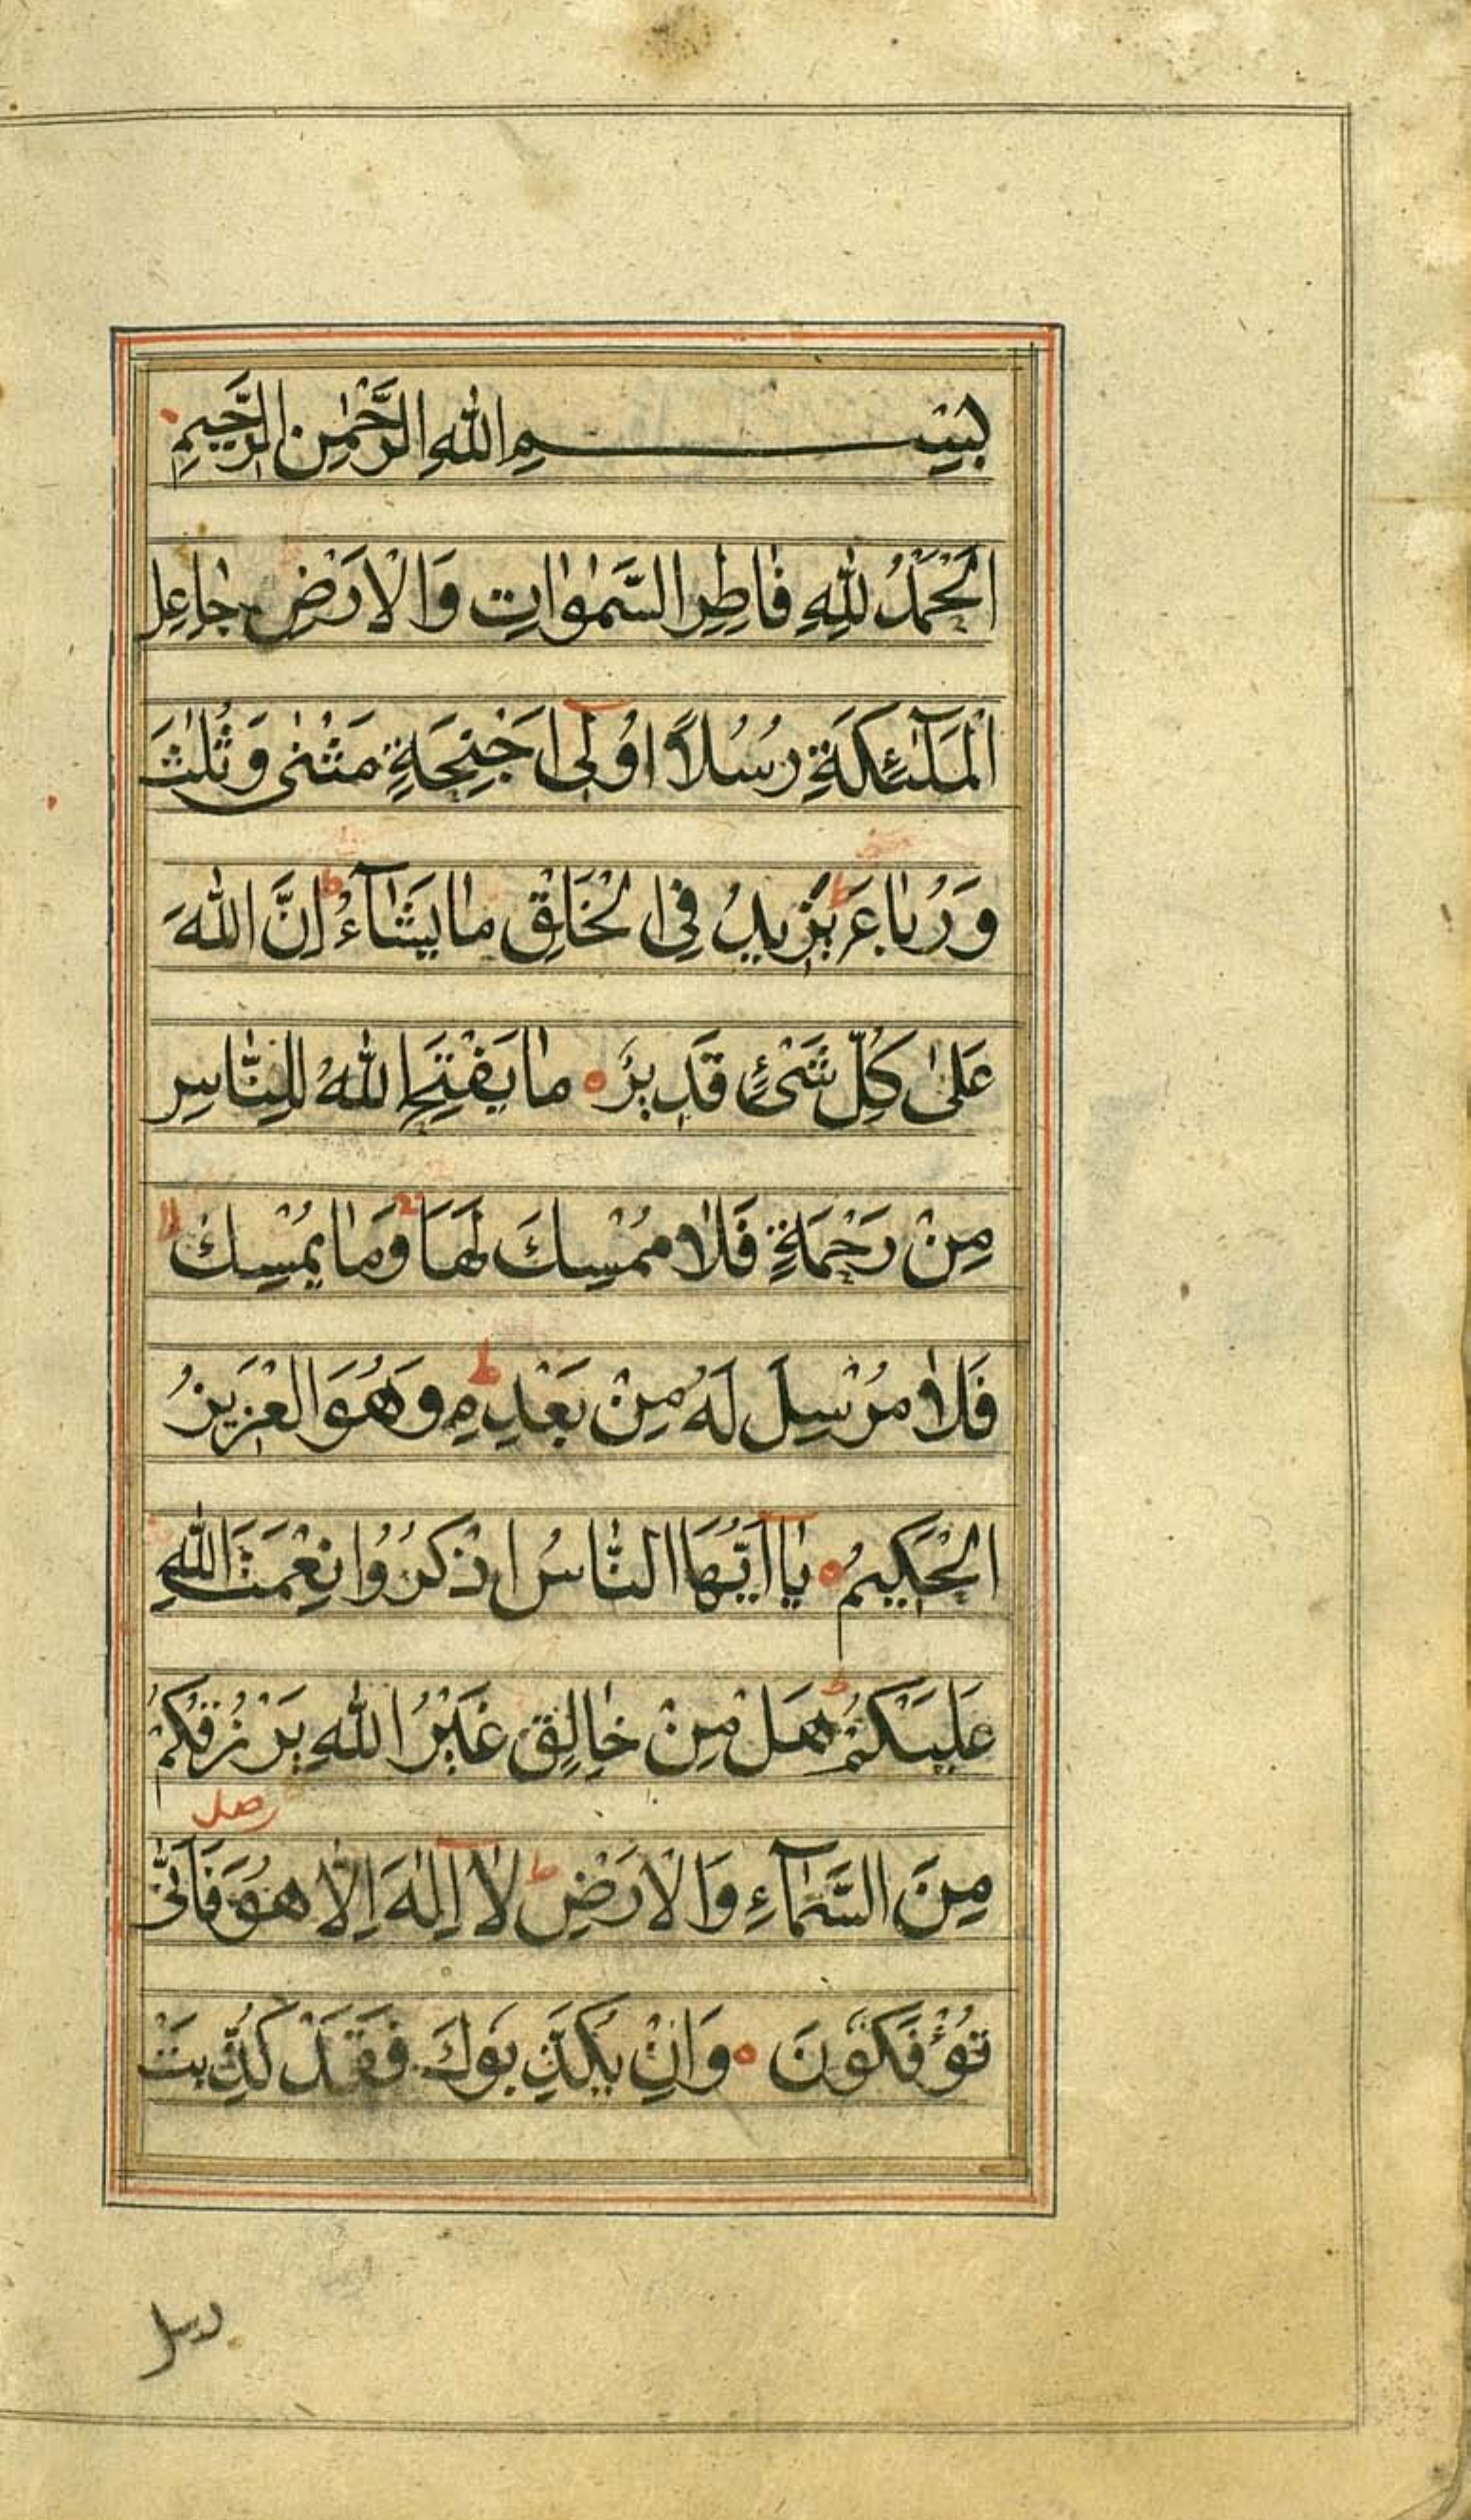 بِسْمِ اللّٰهِ الرَّحْمٰنِ الرَّحِيمِ
اَلْحَمْدُ لِلّٰهِ فَاطِرِ السَّمٰوٰاتِ وَالْاَرْضِ جٰاعِلِ
الْمَلٰٓئِكَةِ رُسُلًا اُولٓى اَجْنِحَةٍ مَثْنٰى وَثُلٰثَ
وَرُبٰاعَ ط يَزِيدُ فِى الْخَلْقِ مٰا يَشٰٓاءُ ط اِنَّ اللّٰهَ
عَلٰى كُلِّ شَىْءٍ قَدِيرٌ ه مٰا يَفْتَحِ اللّٰهُ لِلنّٰاسِ
مِنْ رَحْمَةٍ فَلٰا مُمْسِكَ لَهَا ج وَمٰا يُمْسِكْ لا
فَلٰا مُرْسِلَ لَهُ مِنْ بَعْدِهِ ط وَهُوَ الْعَزِيزُ
الْحَكِيمُ ه يٰٓا اَيُّهَا النّٰاسُ اذْكُرُوا نِعْمَتَ اللّٰهِ
عَلَيْكُمْ ط هَلْ مِنْ خٰالِقٍ غَيْرُ اللّٰهِ يَرْزُقُكُمْ
مِنَ السَّمٰٓاءِ وَالْاَرْضِ ط لٰٓا اِلٰهَ اِلّٰا هُوَ صل فَاَنّٰى
تُؤْفَكُونَ ه وَاِنْ يُكَذِّبُوكَ فَقَدْ كُذِّبَتْ
رسل